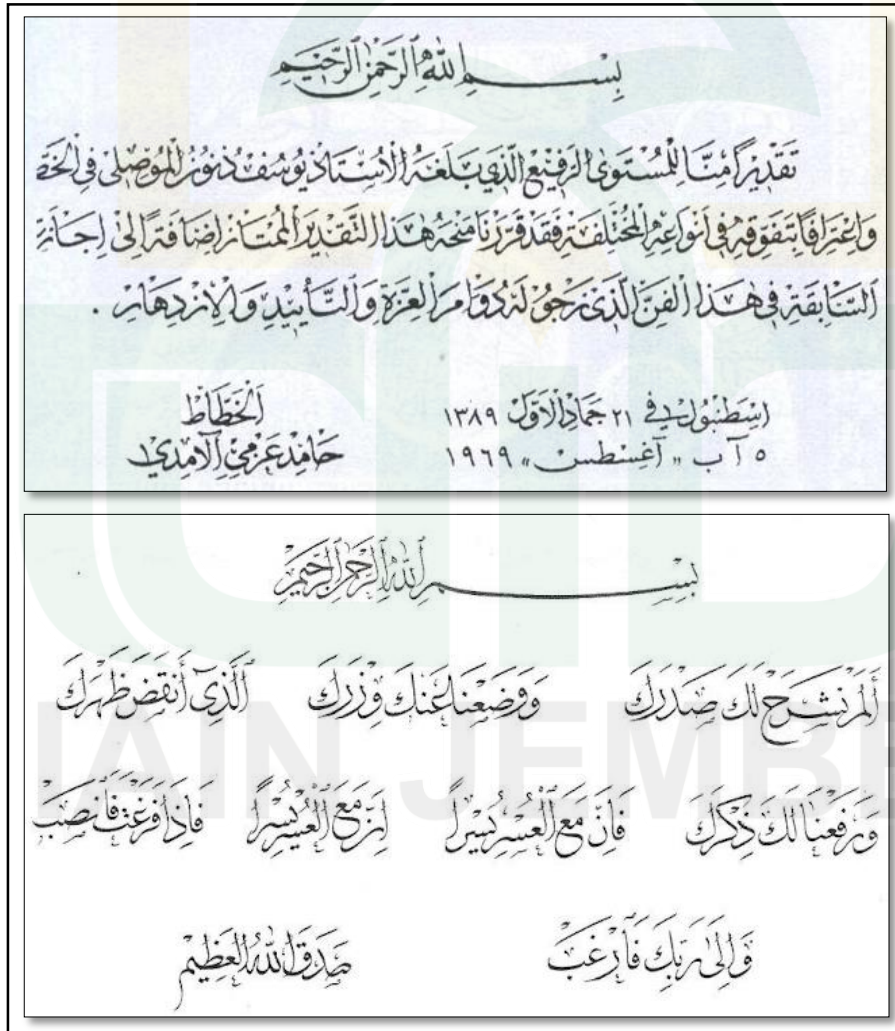 بِسْمِ اللهِ الرَّحْمٰنِ الرَّحِيْمِ
تَقْدِيْراً مِنَّا لِلْمُسْتَوَى الرَّفِيْعِ الَّذِي بَلَغَهُ الْأُسْتَاذ يُوسُفْ ذُنُونْ الْمُوْصِلِى فِى الْخَط
وَاعْتِرَافًا بِتَفَوُّقِهِ فِى أَنْوَاعِهِ الْمُخْتَلِفَةِ فَقَدْ قَرَّرْنَا مَنْحَهُ هٰذَا التَّقْدِيْرَ الْمُمْتَازَ اِضَافَةً اِلٰى اِجَازَتِ
السَّابِقَةِ فِى هٰذَا الْفَنِّ الَّذِى نَرْجُوْ لَهُ دَوَامَ الْعِزَّةِ وَالتَّأْيِيْدِ وَالْاِزْدِهَارِ .
اِسْطَنْبُول فِي ٢١ جَمَادَ الْاَوَّلْ ١٣٨٩
٥ آب " آغُسْطس " ١٩٦٩
اَلْخَطَّاطْ
حَامِدْ عَزْمِي الْآمِدِي
بِسْمِ اللهِ الرَّحْمٰنِ الرَّحِيْمِ
أَلَمْ نَشْرَحْ لَكَ صَدْرَكَ وَوَضَعْنَا عَنْكَ وِزْرَكَ اَلَّذِىٓ أَنْقَضَ ظَهْرَكَ
وَرَفَعْنَا لَكَ ذِكْرَكَ فَاِنَّ مَعَ الْعُسْرِ يُسْراً اِنَّ مَعَ الْعُسْرِ يُسْراً فَاِذَا فَرَغْتَ فَانْصَبْ
وَاِلٰى رَبِّكَ فَارْغَبْ صَدَقَ اللهُ الْعَظِيْم
IAIN JEMBE